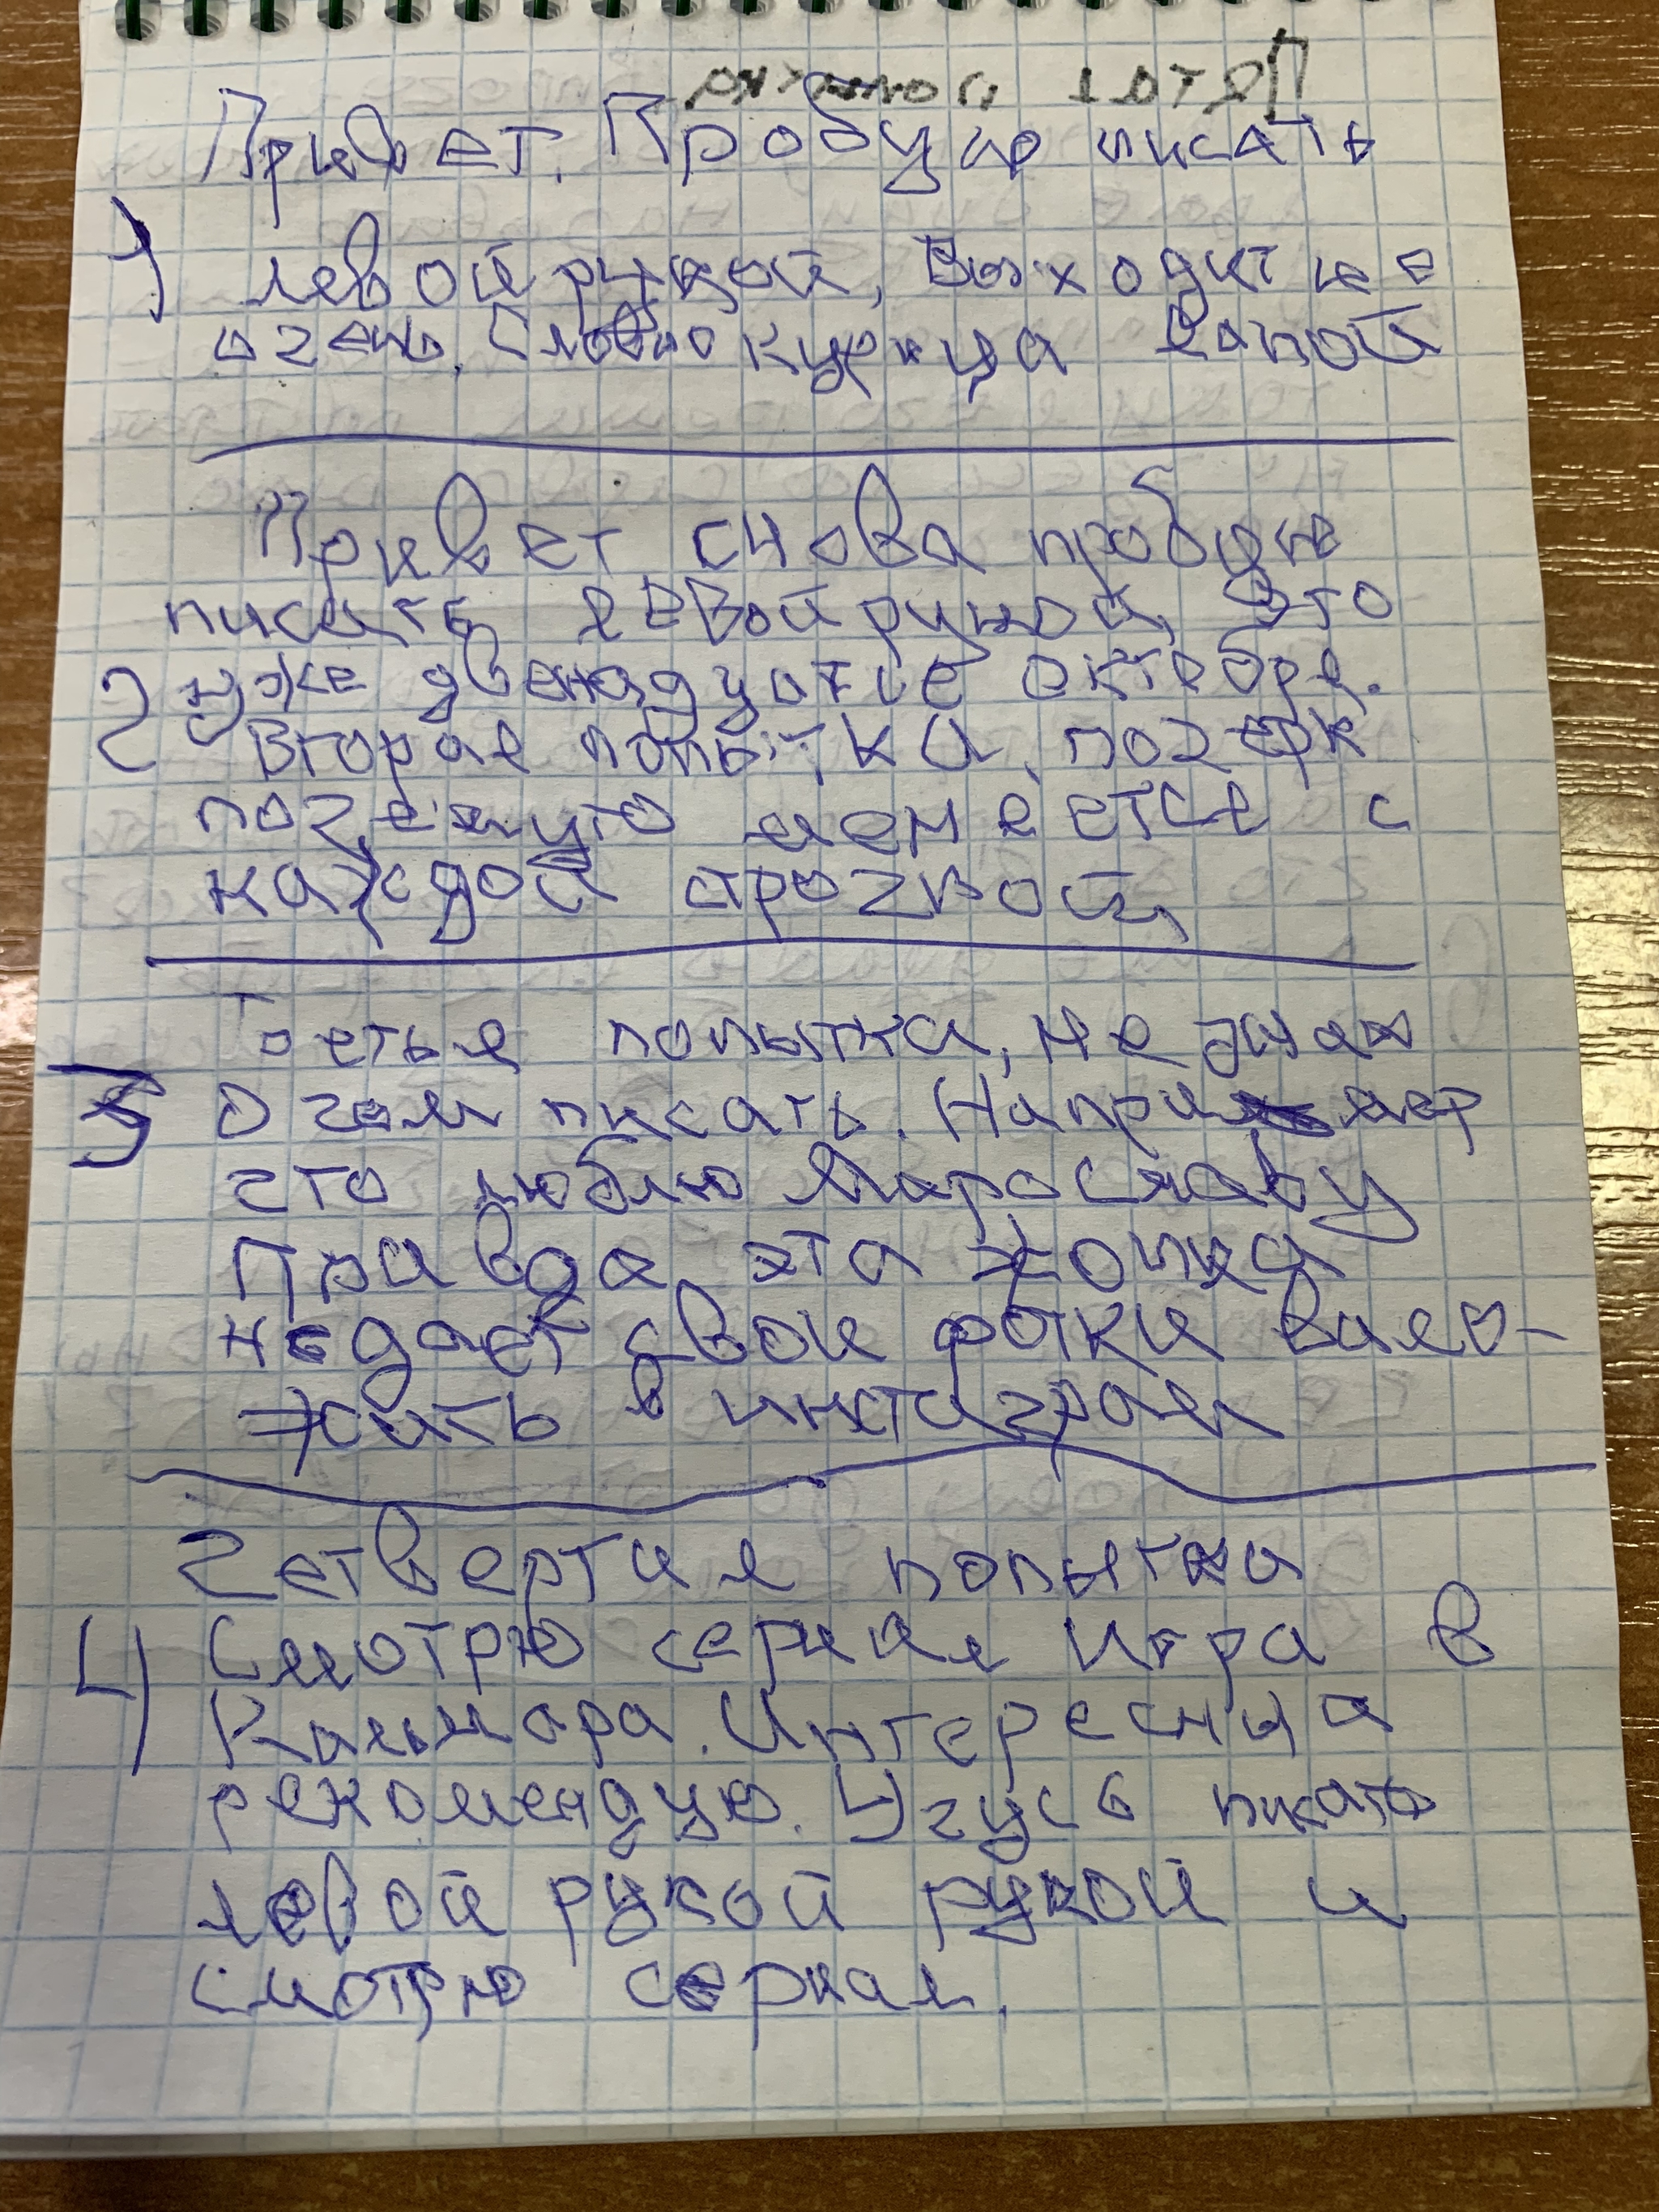 Привет. Пробую писать
1) левой рукой, Выходит не
очень. Словно курица лапой
Привет снова пробую
писать левой рукой, Это
2) уже двенадцатое октября.
Вторая попытка, почерк
почемуто меняется с
каждой строчкой,
Третья попытка, не знаю
3 О чем писать. Например
что люблю Мирославу
Правда эта жопка
не дает свои фотки вало-
жить в инстаграм
Четвертая попытка
4) Смотрю сериал Игра в
Кальмара. Интересный
рекомендую. Учусь писать
левой рукой рукой и
смотрю сериал.